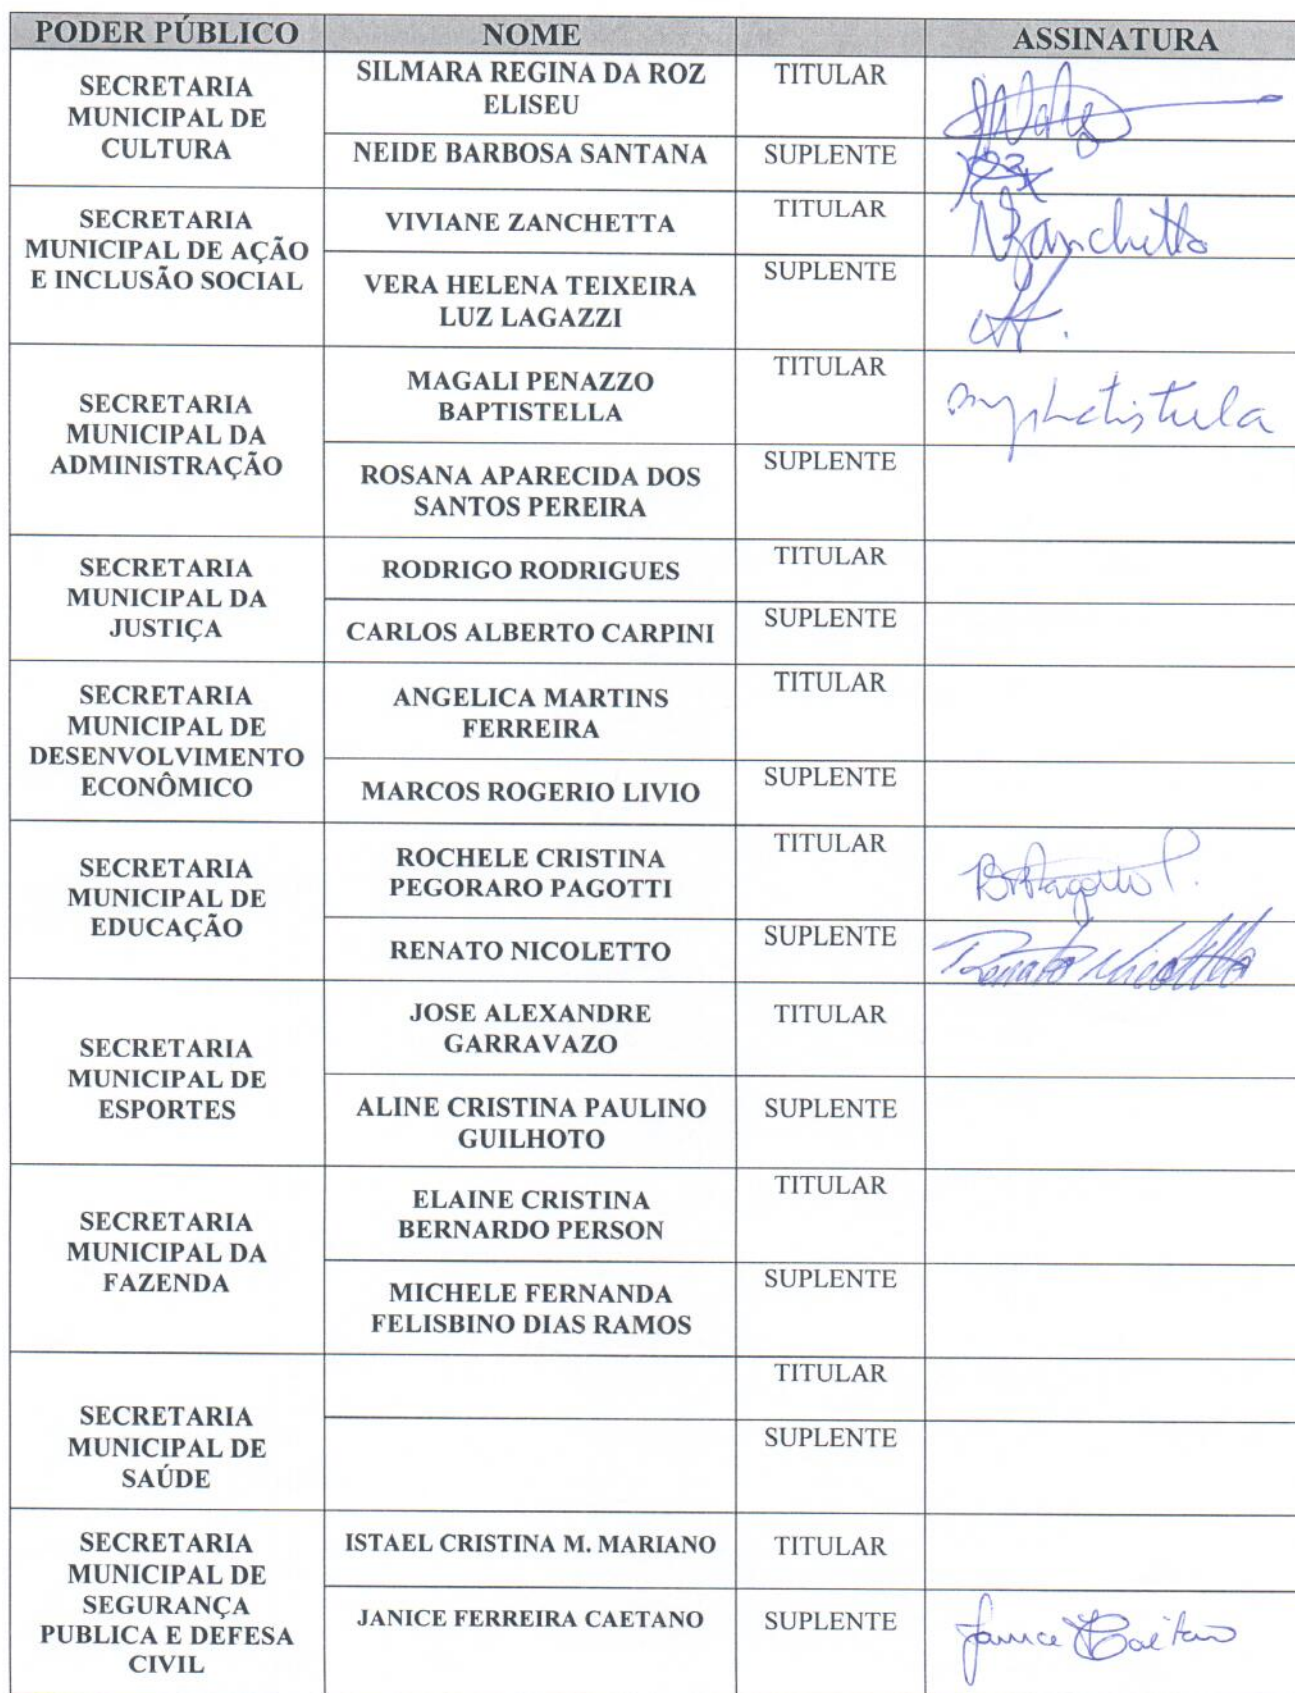 PODER PÚBLICO NOME ASSINATURA
SECRETARIA
MUNICIPAL DE
CULTURA
SILMARA REGINA DA ROZ
ELISEU
TITULAR
NEIDE BARBOSA SANTANA
SUPLENTE
SECRETARIA
MUNICIPAL DE AÇÃO
E INCLUSÃO SOCIAL
VIVIANE ZANCHETTA
TITULAR
Zanchetta
VERA HELENA TEIXEIRA
LUZ LAGAZZI
SUPLENTE
SECRETARIA
MUNICIPAL DA
ADMINISTRAÇÃO
MAGALI PENAZZO
BAPTISTELLA
TITULAR
ROSANA APARECIDA DOS
SANTOS PEREIRA
SUPLENTE
SECRETARIA
MUNICIPAL DA
JUSTIÇA
RODRIGO RODRIGUES
TITULAR
CARLOS ALBERTO CARPINI
SUPLENTE
SECRETARIA
MUNICIPAL DE
DESENVOLVIMENTO
ECONÔMICO
ANGELICA MARTINS
FERREIRA
TITULAR
MARCOS ROGERIO LIVIO
SUPLENTE
SECRETARIA
MUNICIPAL DE
EDUCAÇÃO
ROCHELE CRISTINA
PEGORARO PAGOTTI
TITULAR
RENATO NICOLETTO
SUPLENTE
Renato Nicoletto
SECRETARIA
MUNICIPAL DE
ESPORTES
JOSE ALEXANDRE
GARRAVAZO
TITULAR
ALINE CRISTINA PAULINO
GUILHOTO
SUPLENTE
SECRETARIA
MUNICIPAL DA
FAZENDA
ELAINE CRISTINA
BERNARDO PERSON
TITULAR
MICHELE FERNANDA
FELISBINO DIAS RAMOS
SUPLENTE
SECRETARIA
MUNICIPAL DE
SAÚDE
TITULAR
SUPLENTE
SECRETARIA
MUNICIPAL DE
SEGURANÇA
PUBLICA E DEFESA
CIVIL
ISTAEL CRISTINA M. MARIANO
TITULAR
JANICE FERREIRA CAETANO
SUPLENTE
Janice F Caetano